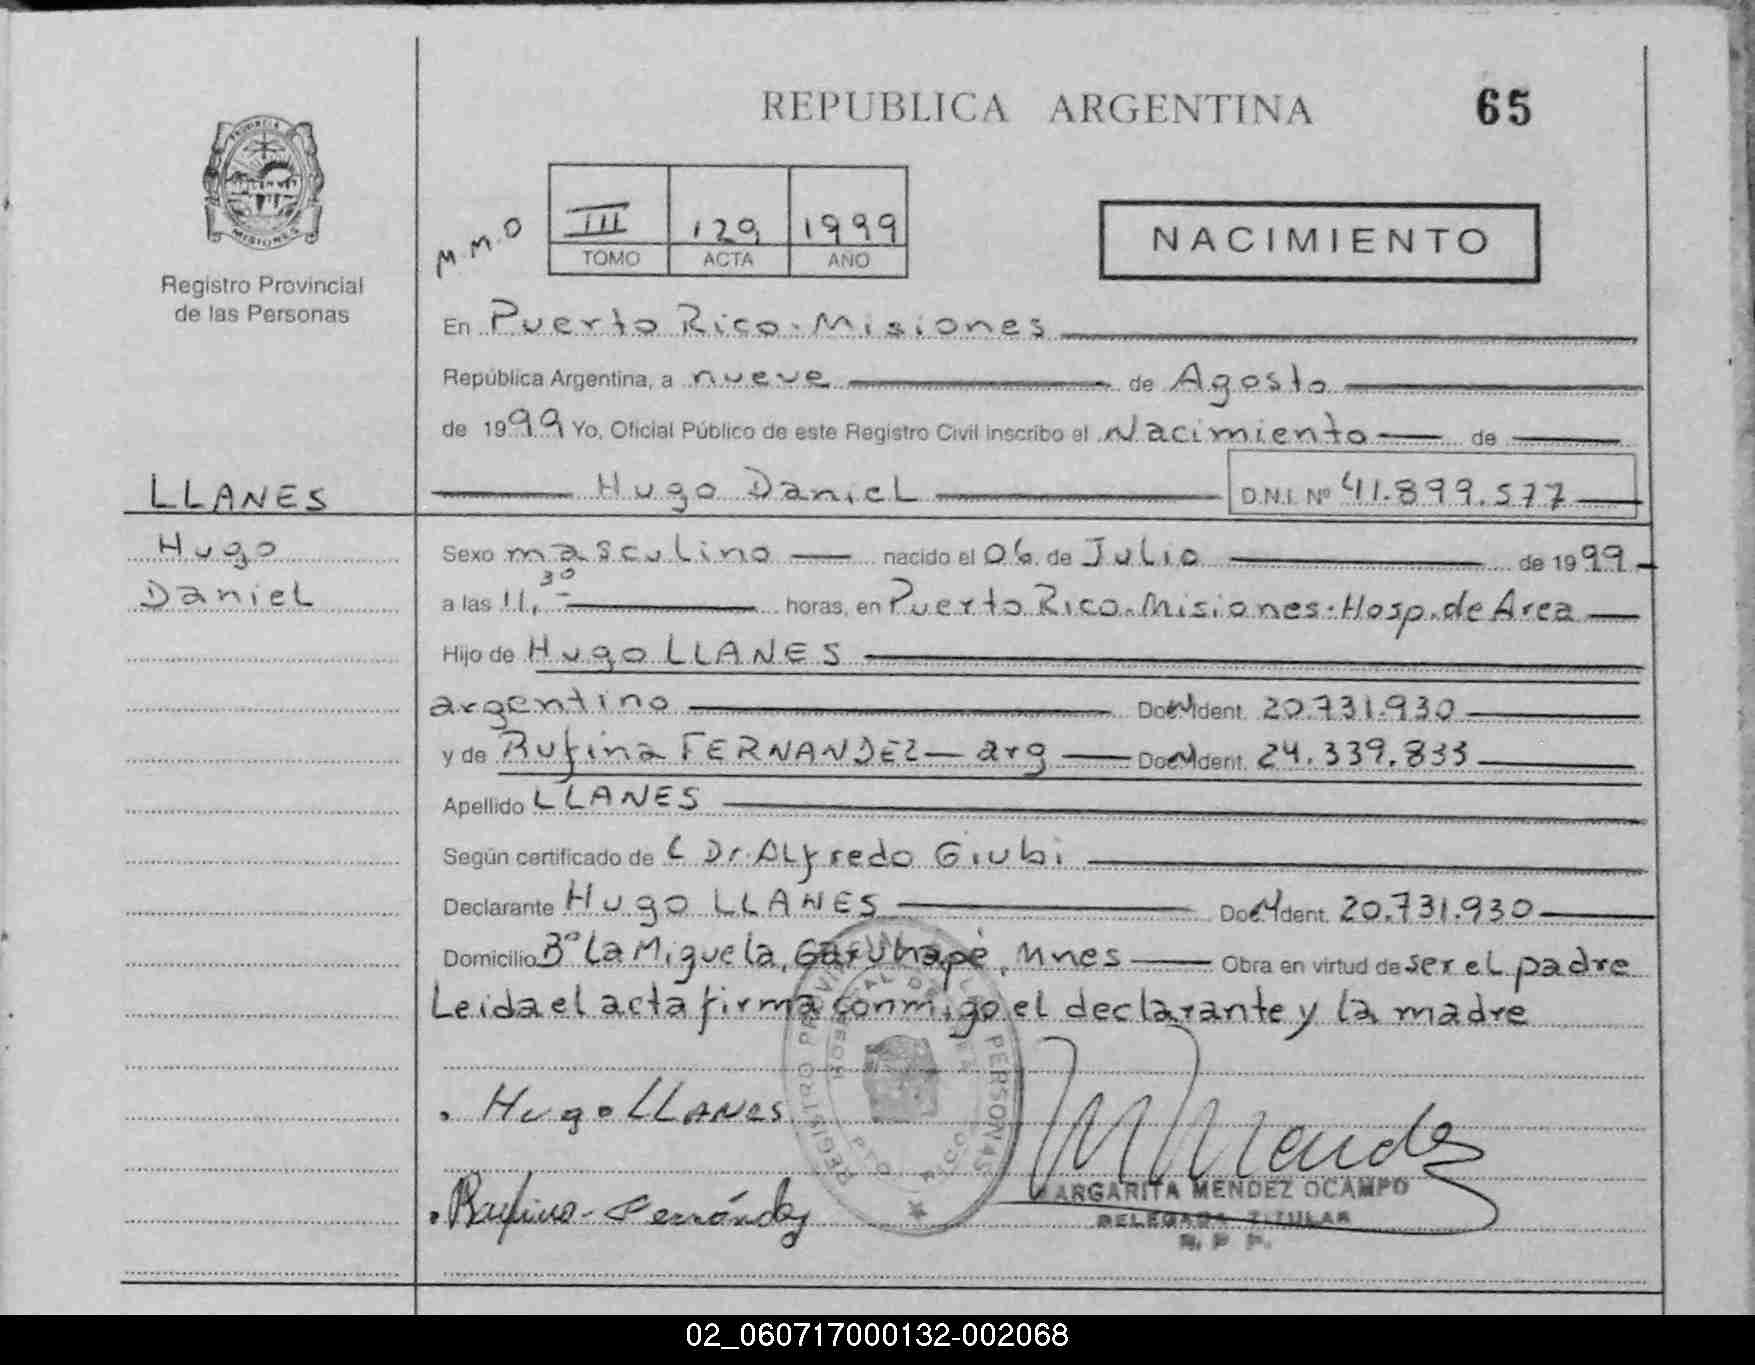 REPUBLICA ARGENTINA 65
PROVINCIA
MISIONES
Registro Provincial
de las Personas
M.M.O
III 129 1999
TOMO ACTA AÑO
NACIMIENTO
En Puerto Rico. Misiones
República Argentina, a nueve de Agosto
de 1999 Yo, Oficial Público de este Registro Civil inscribo el Nacimiento de
LLANES
Hugo
Daniel
Hugo Daniel D.N.I. Nº 41.899.577
Sexo masculino nacido el 06 de Julio de 1999
a las 11,30 horas, en Puerto Rico. Misiones. Hosp. de Area
Hijo de Hugo LLANES
argentino Doc. Ident. 20.731.930
y de Rufina FERNANDEZ - arg Doc. Ident. 24.339.833
Apellido LLANES
Según certificado de Dr. Alfredo Giubi
Declarante Hugo LLANES Doc. Ident. 20.731.930
Domicilio Bº La Miguela, Garuhapé, Mnes Obra en virtud de ser el padre
Leida el acta firma conmigo el declarante y la madre
. Hugo LLANES
. Rufina - Fernández
MARGARITA MENDEZ OCAMPO
DELEGADA TITULAR
R. P. P.
02_060717000132-002068